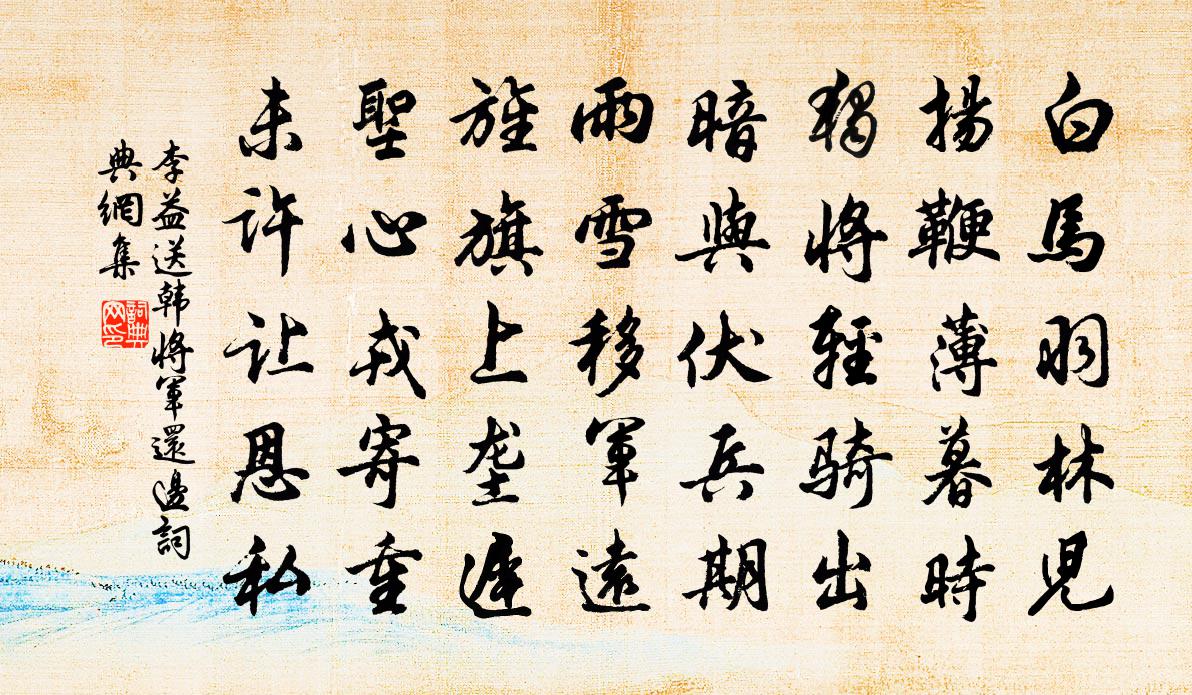 白馬羽林兒
揚鞭薄暮時
獨將輕騎出
暗與伏兵期
雨雪移軍遠
旌旗上垄遲
聖心戎寄重
未许让恩私
李益送韩將軍還邊詞
典網集
詞典網印